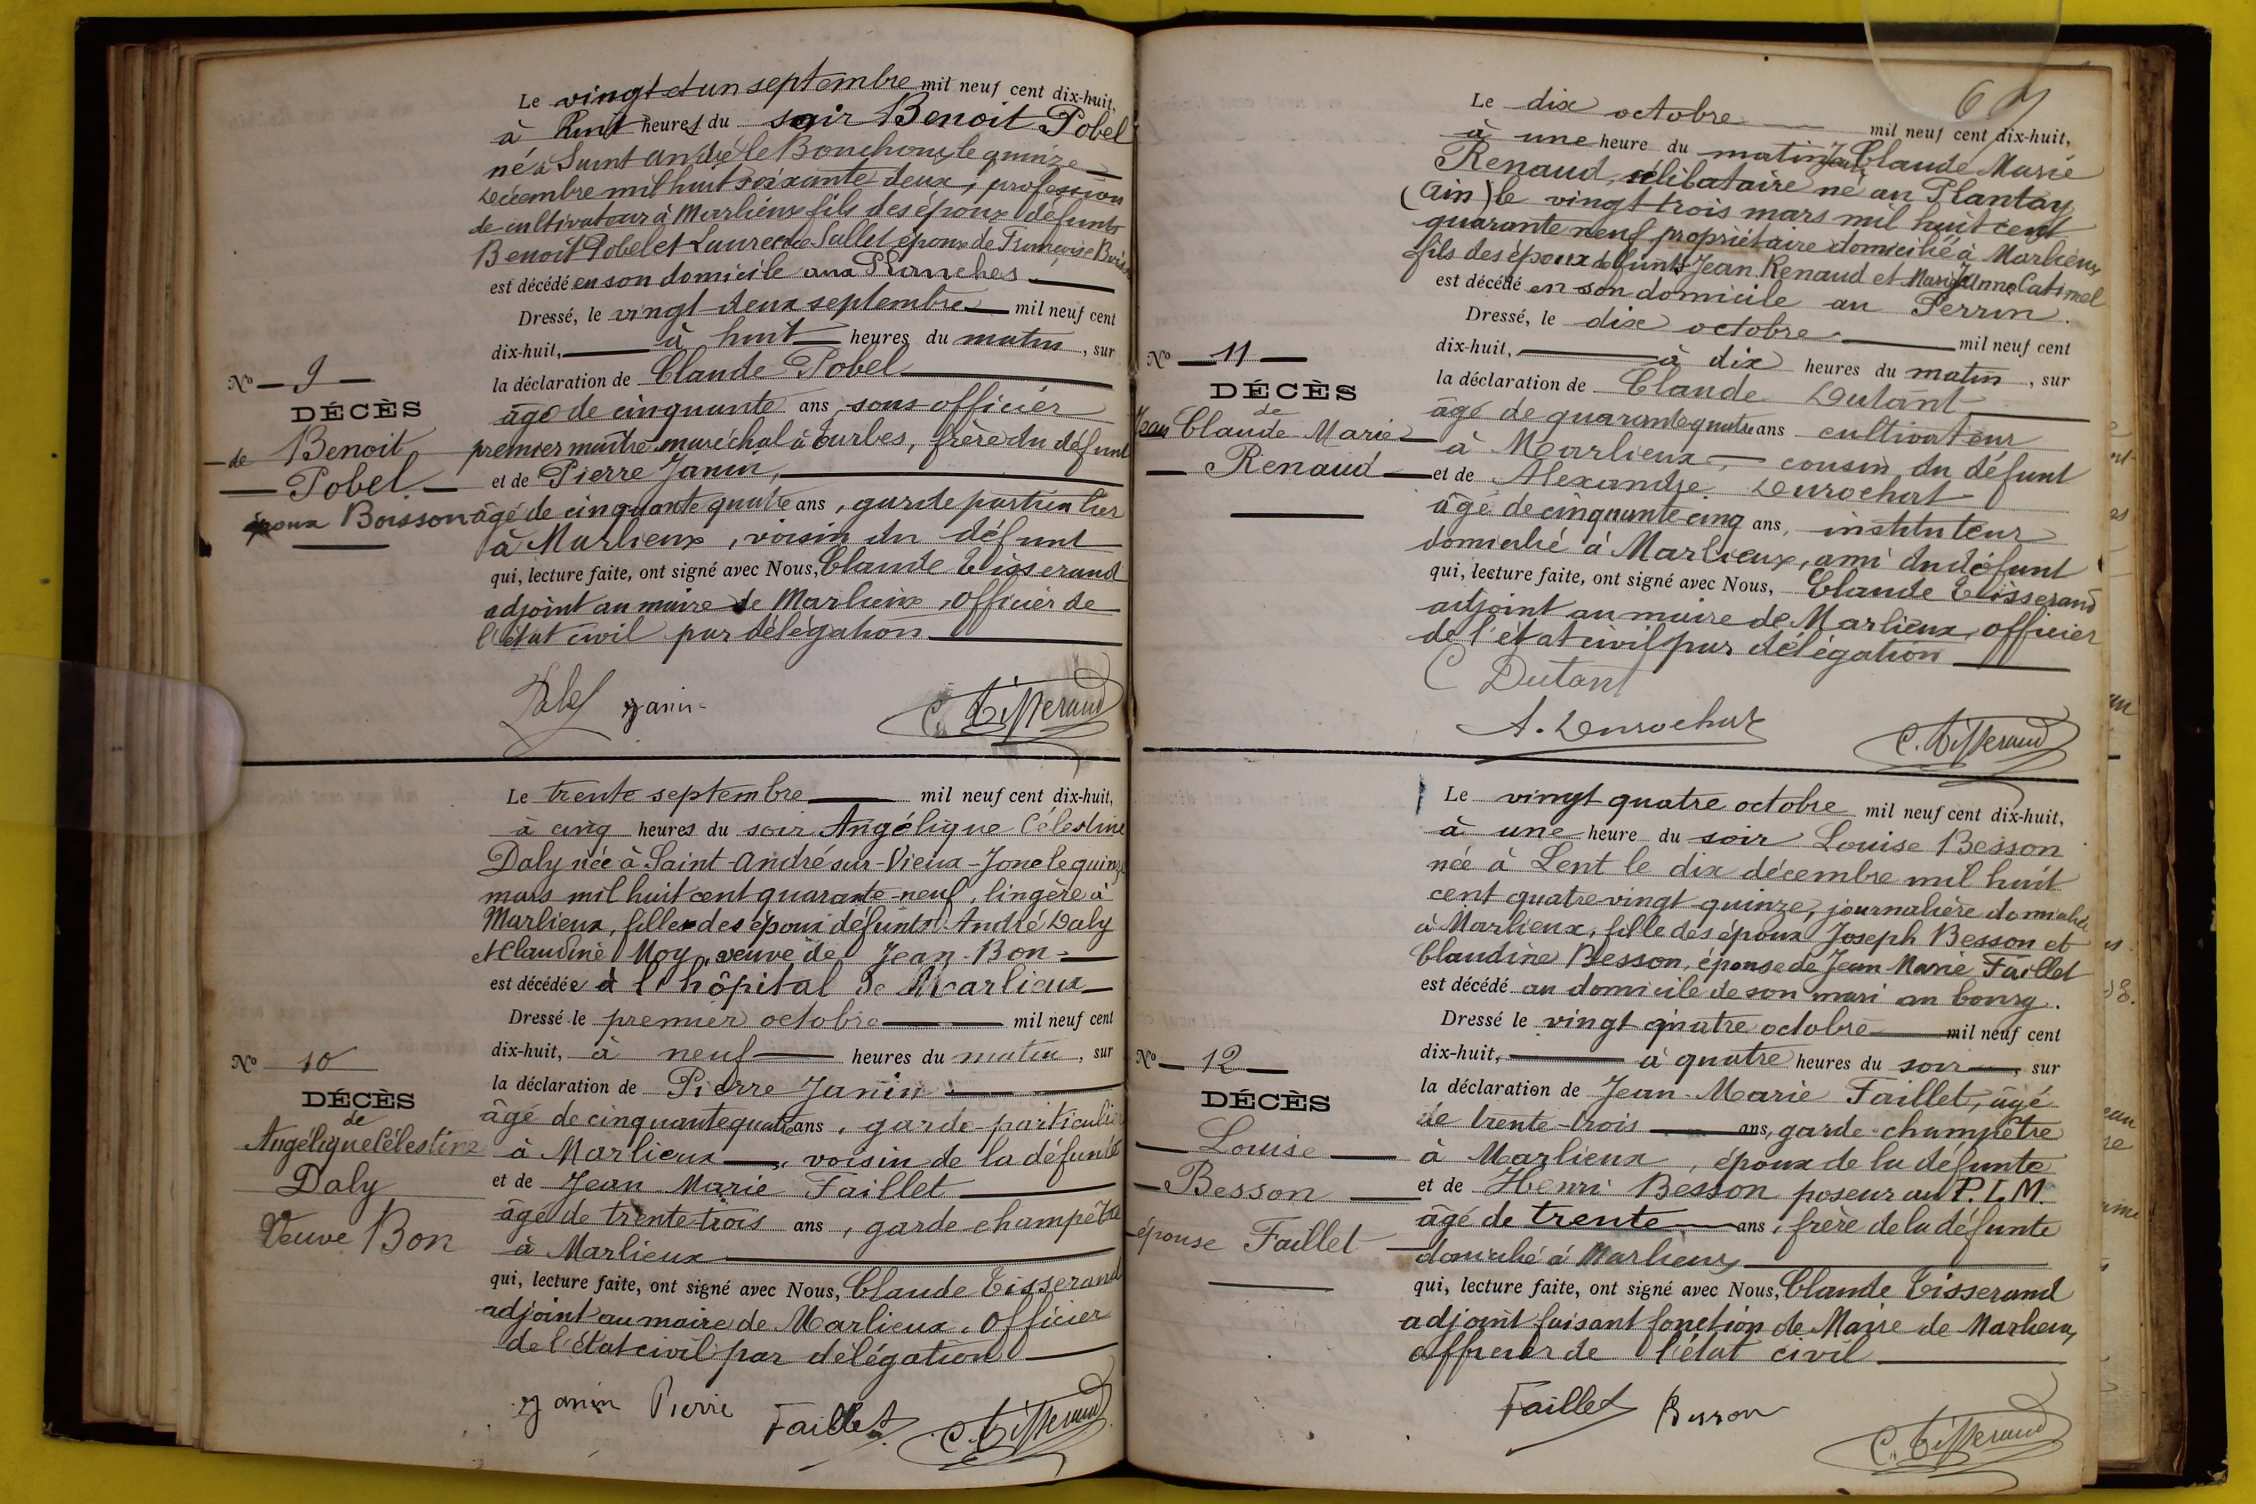 Le vingt et un septembre mil neuf cent dix-huit,
à huit heures du soir Benoit Pobel
né à Saint André le Bouchoux le quinze
décembre mil huit soixante deux, profession
de cultivateur à Marlieux fils des époux défunts
Benoit Pobel et Laurence Sallet époux de Françoise
est décédé en son domicile aux Planches
Dressé, le vingt deux septembre mil neuf cent
dix-huit, à huit heures du matin, sur
la déclaration de Claude Pobel
âgé de cinquante ans sous officier
premier maître maréchal à Tarbes, frère du défunt
et de Pierre Janin,
âgé de cinquante quatre ans, garde particulier
à Marlieux, voisin du défunt
qui, lecture faite, ont signé avec Nous, Claude Tisserand
adjoint au maire de Marlieux, officier de
l'état civil par délégation
Pobel Janin C. Tisserand
No 9
DÉCÈS
de Benoit
Pobel
époux Boisson
Le trente septembre mil neuf cent dix-huit,
à cinq heures du soir Angélique Célestine
Daly née à Saint-André-sur-Vieux-Jonc le quinze
mars mil huit cent quarante-neuf, lingère à
Marlieux, fille des époux défunts André Daly
et Claudine Moy, veuve de Jean Bon
est décédée à l'hôpital de Marlieux
Dressé le premier octobre mil neuf cent
dix-huit, à neuf heures du matin, sur
la déclaration de Pierre Janin
âgé de cinquante quatre ans, garde particulier
à Marlieux, voisin de la défunte
et de Jean Marie Faillet
âgé de trente-trois ans, garde-champêtre
à Marlieux
qui, lecture faite, ont signé avec Nous, Claude Tisserand
adjoint au maire de Marlieux, officier
de l'état civil par délégation
Janin Pierre Faillet C. Tisserand
No 10
DÉCÈS
de
Angélique Célestine
Daly
Veuve Bon
67
Le dix octobre mil neuf cent dix-huit,
à une heure du matin Jean Claude Marie
Renaud, célibataire né au Plantay
(Ain) le vingt-trois mars mil huit cent
quarante neuf propriétaire domicilié à Marlieux
fils des époux défunts Jean Renaud et Marie Jeanne Catimel
est décédé en son domicile au Perrin.
Dressé, le dix octobre mil neuf cent
dix-huit, à dix heures du matin, sur
la déclaration de Claude Dutant
âgé de quarante quatre ans cultivateur
à Marlieux, cousin du défunt
et de Alexandre Durochat
âgé de cinquante cinq ans, instituteur
domicilié à Marlieux, ami du défunt
qui, lecture faite, ont signé avec Nous, Claude Tisserand
adjoint au maire de Marlieux, officier
de l'état civil par délégation
C Dutant
A. Durochat C. Tisserand
No 11
DÉCÈS
de
Jean Claude Marie
Renaud
Le vingt quatre octobre mil neuf cent dix-huit,
à une heure du soir Louise Besson
née à Lent le dix décembre mil huit
cent quatre vingt quinze, journalière domiciliée
à Marlieux, fille des époux Joseph Besson et
Claudine Besson, épouse de Jean Marie Faillet
est décédé au domicile de son mari au bourg.
Dressé le vingt quatre octobre mil neuf cent
dix-huit, à quatre heures du soir, sur
la déclaration de Jean-Marie Faillet, âgé
de trente-trois ans, garde-champêtre
à Marlieux, époux de la défunte
et de Henri Besson poseur au P.L.M.
âgé de trente ans, frère de la défunte
domicilié à Marlieux
qui, lecture faite, ont signé avec Nous, Claude Tisserand
adjoint faisant fonction de Maire de Marlieux,
officier de l'état civil
Faillet Besson
C. Tisserand
No 12
DÉCÈS
Louise
Besson
épouse Faillet